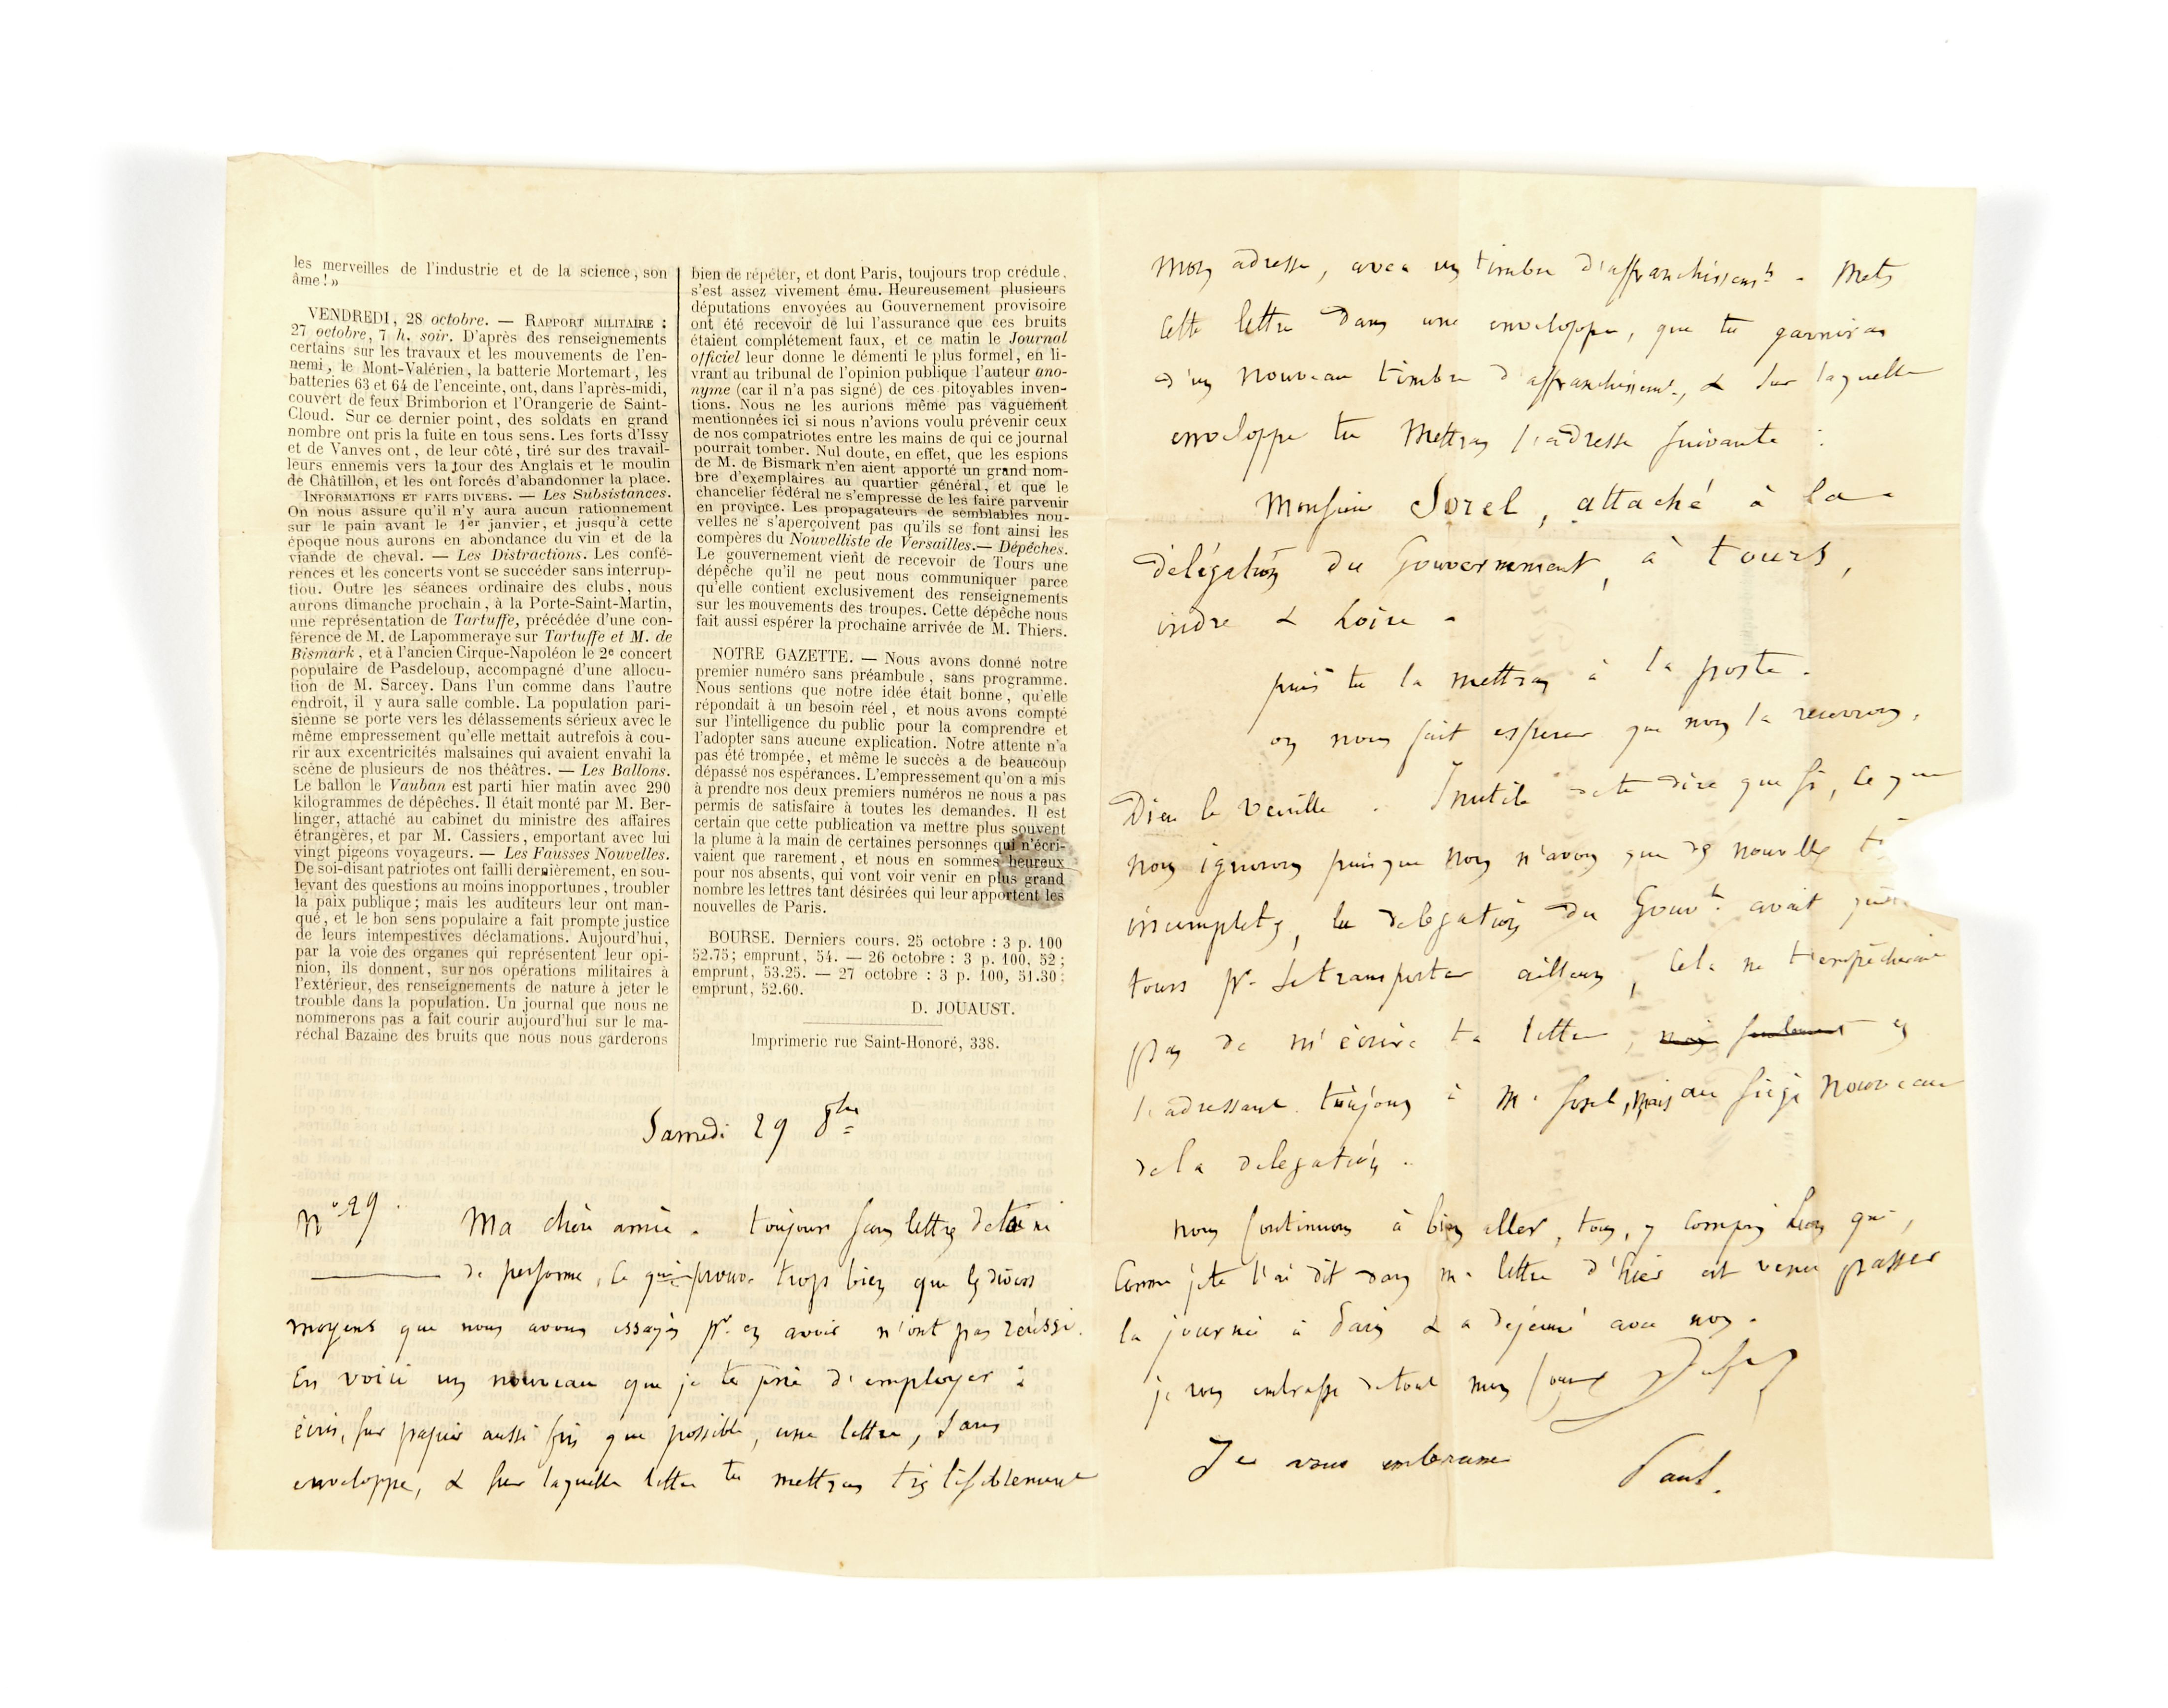 les merveilles de l'industrie et de la science, son
âme!»
VENDREDI, 28 octobre. — RAPPORT MILITAIRE :
27 octobre, 7 h. soir. D'après des renseignements
certains sur les travaux et les mouvements de l'en-
nemi, le Mont-Valérien, la batterie Mortemart, les
batteries 63 et 64 de l'enceinte, ont, dans l'après-midi,
couvert de feux Brimborion et l'Orangerie de Saint-
Cloud. Sur ce dernier point, des soldats en grand
nombre ont pris la fuite en tous sens. Les forts d'Issy
et de Vanves ont, de leur côté, tiré sur des travail-
leurs ennemis vers la tour des Anglais et le moulin
de Châtillon, et les ont forcés d'abandonner la place.
INFORMATIONS ET FAITS DIVERS. — Les Subsistances.
On nous assure qu'il n'y aura aucun rationnement
sur le pain avant le 1er janvier, et jusqu'à cette
époque nous aurons en abondance du vin et de la
viande de cheval. — Les Distractions. Les confé-
rences et les concerts vont se succéder sans interrup-
tion. Outre les séances ordinaire des clubs, nous
aurons dimanche prochain, à la Porte-Saint-Martin,
une représentation de Tartuffe, précédée d'une con-
férence de M. de Lapommeraye sur Tartuffe et M. de
Bismark, et à l'ancien Cirque-Napoléon le 2e concert
populaire de Pasdeloup, accompagné d'une allocu-
tion de M. Sarcey. Dans l'un comme dans l'autre
endroit, il y aura salle comble. La population pari-
sienne se porte vers les délassements sérieux avec le
même empressement qu'elle mettait autrefois à cou-
rir aux excentricités malsaines qui avaient envahi la
scène de plusieurs de nos théâtres. — Les Ballons.
Le ballon le Vauban est parti hier matin avec 290
kilogrammes de dépêches. Il était monté par M. Ber-
linger, attaché au cabinet du ministre des affaires
étrangères, et par M. Cassiers, emportant avec lui
vingt pigeons voyageurs. — Les Fausses Nouvelles.
De soi-disant patriotes ont failli dernièrement, en sou-
levant des questions au moins inopportunes, troubler
la paix publique; mais les auditeurs leur ont man-
qué, et le bon sens populaire a fait prompte justice
de leurs intempestives déclamations. Aujourd'hui,
par la voie des organes qui représentent leur opi-
nion, ils donnent, sur nos opérations militaires à
l'extérieur, des renseignements de nature à jeter le
trouble dans la population. Un journal que nous ne
nommerons pas a fait courir aujourd'hui sur le ma-
réchal Bazaine des bruits que nous nous garderons
bien de répéter, et dont Paris, toujours trop crédule,
s'est assez vivement ému. Heureusement plusieurs
députations envoyées au Gouvernement provisoire
ont été recevoir de lui l'assurance que ces bruits
étaient complétement faux, et ce matin le Journal
officiel leur donne le démenti le plus formel, en li-
vrant au tribunal de l'opinion publique l'auteur ano-
nyme (car il n'a pas signé) de ces pitoyables inven-
tions. Nous ne les aurions même pas vaguement
mentionnées ici si nous n'avions voulu prévenir ceux
de nos compatriotes entre les mains de qui ce journal
pourrait tomber. Nul doute, en effet, que les espions
de M. de Bismark n'en aient apporté un grand nom-
bre d'exemplaires au quartier général, et que le
chancelier fédéral ne s'empresse de les faire parvenir
en province. Les propagateurs de semblables nou-
velles ne s'aperçoivent pas qu'ils se font ainsi les
compères du Nouvelliste de Versailles.— Dépêches.
Le gouvernement vient de recevoir de Tours une
dépêche qu'il ne peut nous communiquer parce
qu'elle contient exclusivement des renseignements
sur les mouvements des troupes. Cette dépêche nous
fait aussi espérer la prochaine arrivée de M. Thiers.
NOTRE GAZETTE. — Nous avons donné notre
premier numéro sans préambule, sans programme.
Nous sentions que notre idée était bonne, qu'elle
répondait à un besoin réel, et nous avons compté
sur l'intelligence du public pour la comprendre et
l'adopter sans aucune explication. Notre attente n'a
pas été trompée, et même le succès a de beaucoup
dépassé nos espérances. L'empressement qu'on a mis
à prendre nos deux premiers numéros ne nous a pas
permis de satisfaire à toutes les demandes. Il est
certain que cette publication va mettre plus souvent
la plume à la main de certaines personnes qui n'écri-
vaient que rarement, et nous en sommes heureux
pour nos absents, qui vont voir venir en plus grand
nombre les lettres tant désirées qui leur apportent les
nouvelles de Paris.
BOURSE. Derniers cours. 25 octobre : 3 p. 100
52.75; emprunt, 54. — 26 octobre : 3 p. 100, 52;
emprunt, 53.25. — 27 octobre : 3 p. 100, 51.30;
emprunt, 52.60.
D. JOUAUST.
Imprimerie rue Saint-Honoré, 338.
Samedi 29 8bre
N° 29. Ma chère amie. toujours sans lettre de toi ni
de personne, ce qui prouve trop bien que les divers
moyens que nous avons essayés pr. en avoir n'ont pas réussi.
En voici un nouveau que je te prie d'employer :
écris, sur papier aussi fin que possible, une lettre, sans
enveloppe, & sur laquelle lettre tu mettras très lisiblement
mon adresse, avec un timbre d'affranchissemt. Mets
cette lettre dans une enveloppe, que tu garniras
d'un nouveau timbre d'affranchissemt., & sur laquelle
enveloppe tu mettras l'adresse suivante :
Monsieur Sorel, attaché à la
délégation du Gouvernement, à tours,
indre & Loire.
puis tu la mettras à la poste.
on nous fait espérer que nous la recevrons,
Dieu le veuille. Inutile de te dire que si, ce que
nous ignorons puisque nous n'avons que des nouvelles
incomplètes, la délégation du Gouvt. avait
tours pr. se transporter ailleurs, cela ne t'empêcherait
pas de m'écrire ta lettre, non seulement en
l'adressant toujours à M. Sorel, mais au siège nouveau
de la délégation.
nous continuons à bien aller, tous, y compris Léon qui,
comme je te l'ai dit dans ma lettre d'hier est venu passer
la journée à Paris & a déjeuné avec nous.
je vous embrasse de tout mon coeur
Je vous embrasse Paul.